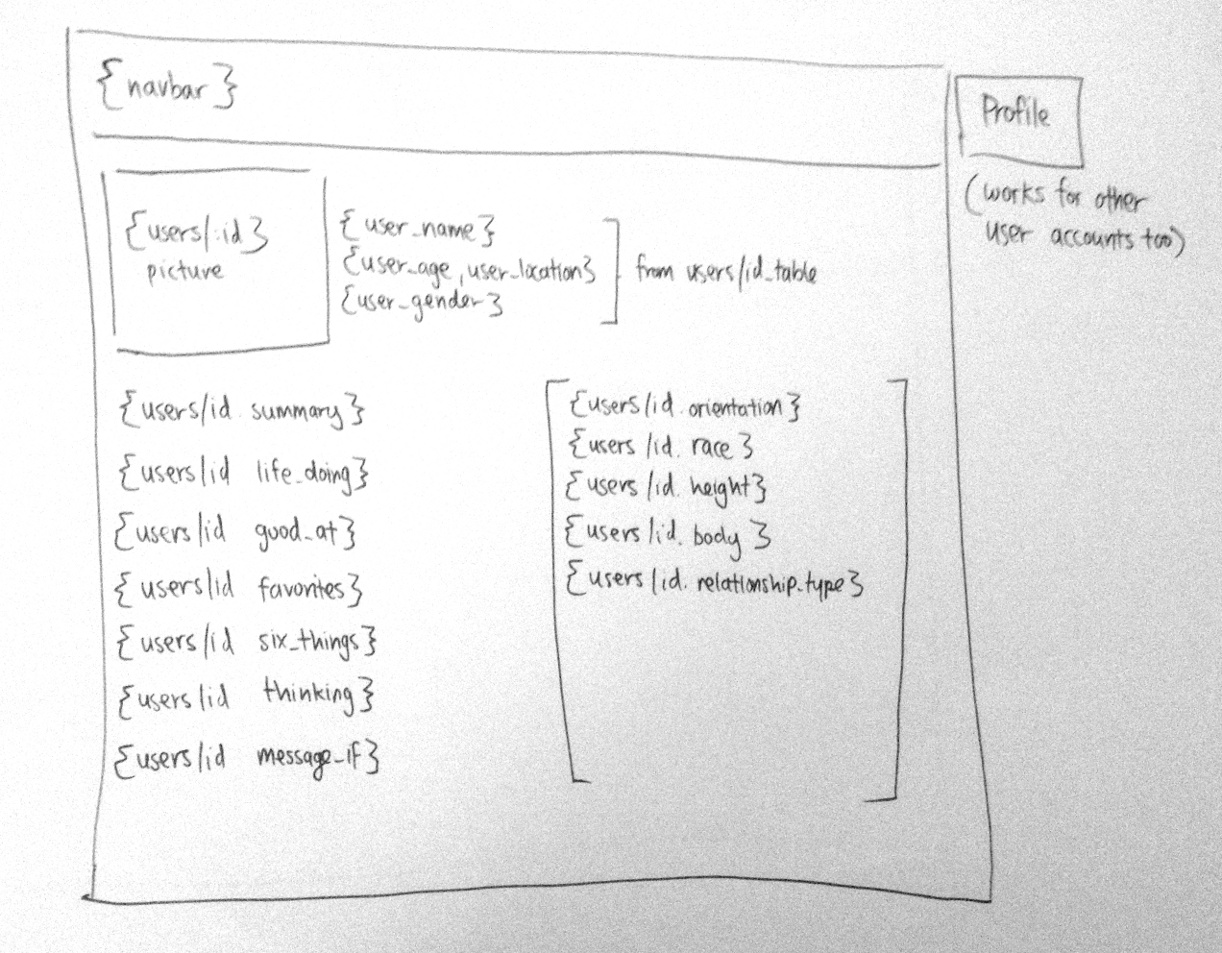 {navbar}
Profile
(works for other
user accounts too)
{users/:id}
picture
{user_name}
{user_age, user_location}
{user_gender}
from users/id_table
{users/id. summary}
{users/id life_doing}
{users/id good_at}
{users/id favorites}
{users/id six_things}
{users/id thinking}
{users/id message_if}
{users/id. orientation}
{users/id. race}
{users/id. height}
{users/id. body}
{users/id. relationship_type}